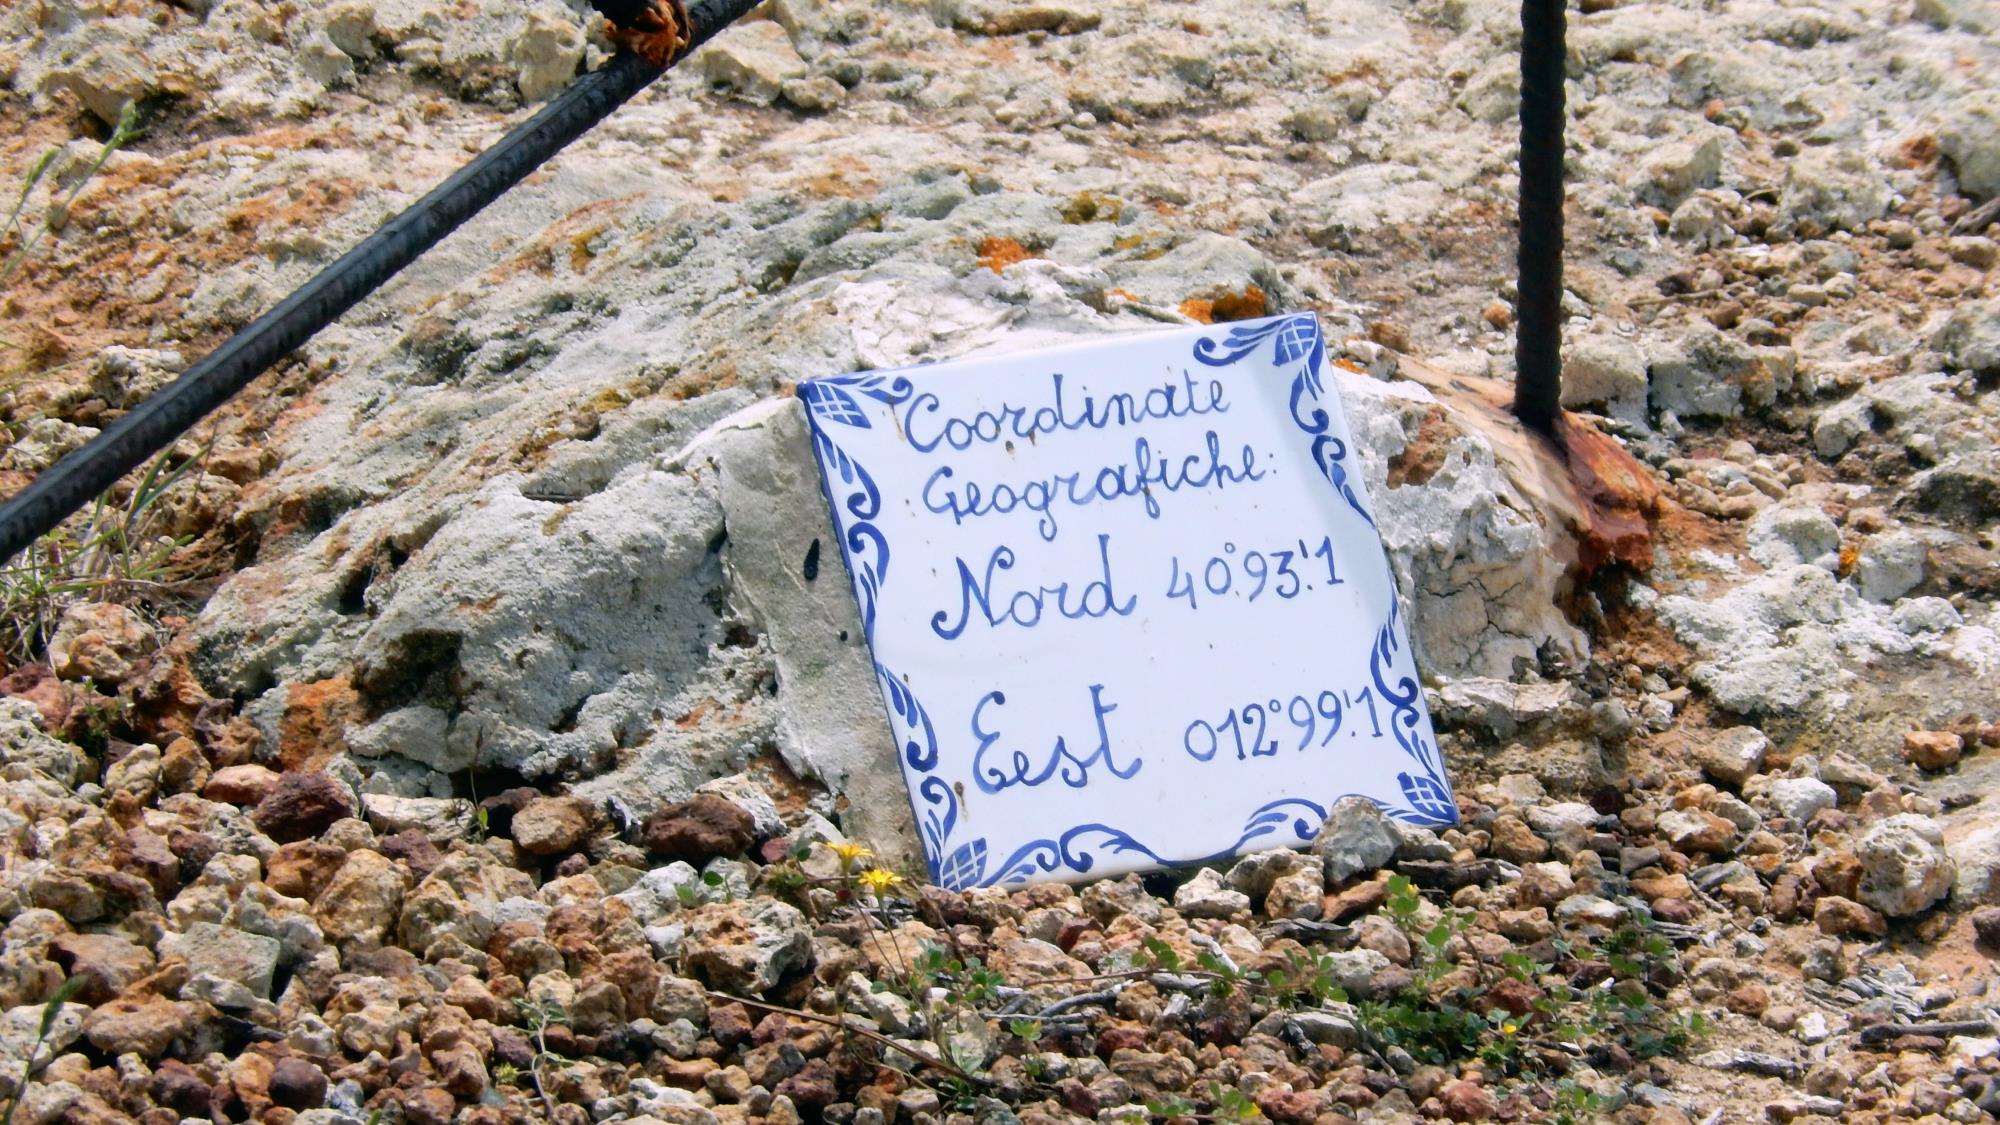 Coordinate
Geografiche:
Nord 40°93'.1
Eest 012°99'.1